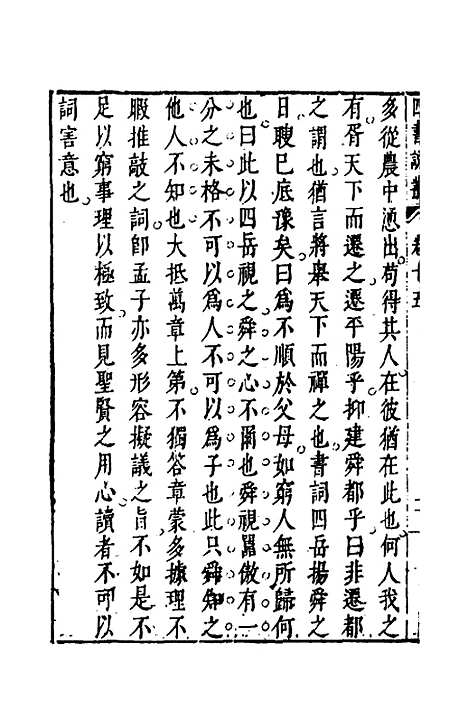 四書說叢 卷十五
多從農中憑出苟得其人在彼猶在此也何人我之
有胥天下而遷之遷平陽乎抑建舜都乎曰非遷都
之謂也猶言將舉天下而禪之也書詞四岳揚舜之
曰瞍已底豫矣曰爲不順於父母如窮人無所歸何
也曰此以四岳視之舜之心不爾也舜視嚚傲有一
分之未格不可以爲人不可以爲子也此只舜知之
他人不知也大抵萬章上第不獨答章蒙多據理不
暇推敲之詞卽孟子亦多形容擬議之旨不如是不
足以窮事理以極致而見聖賢之用心讀者不可以
詞害意也